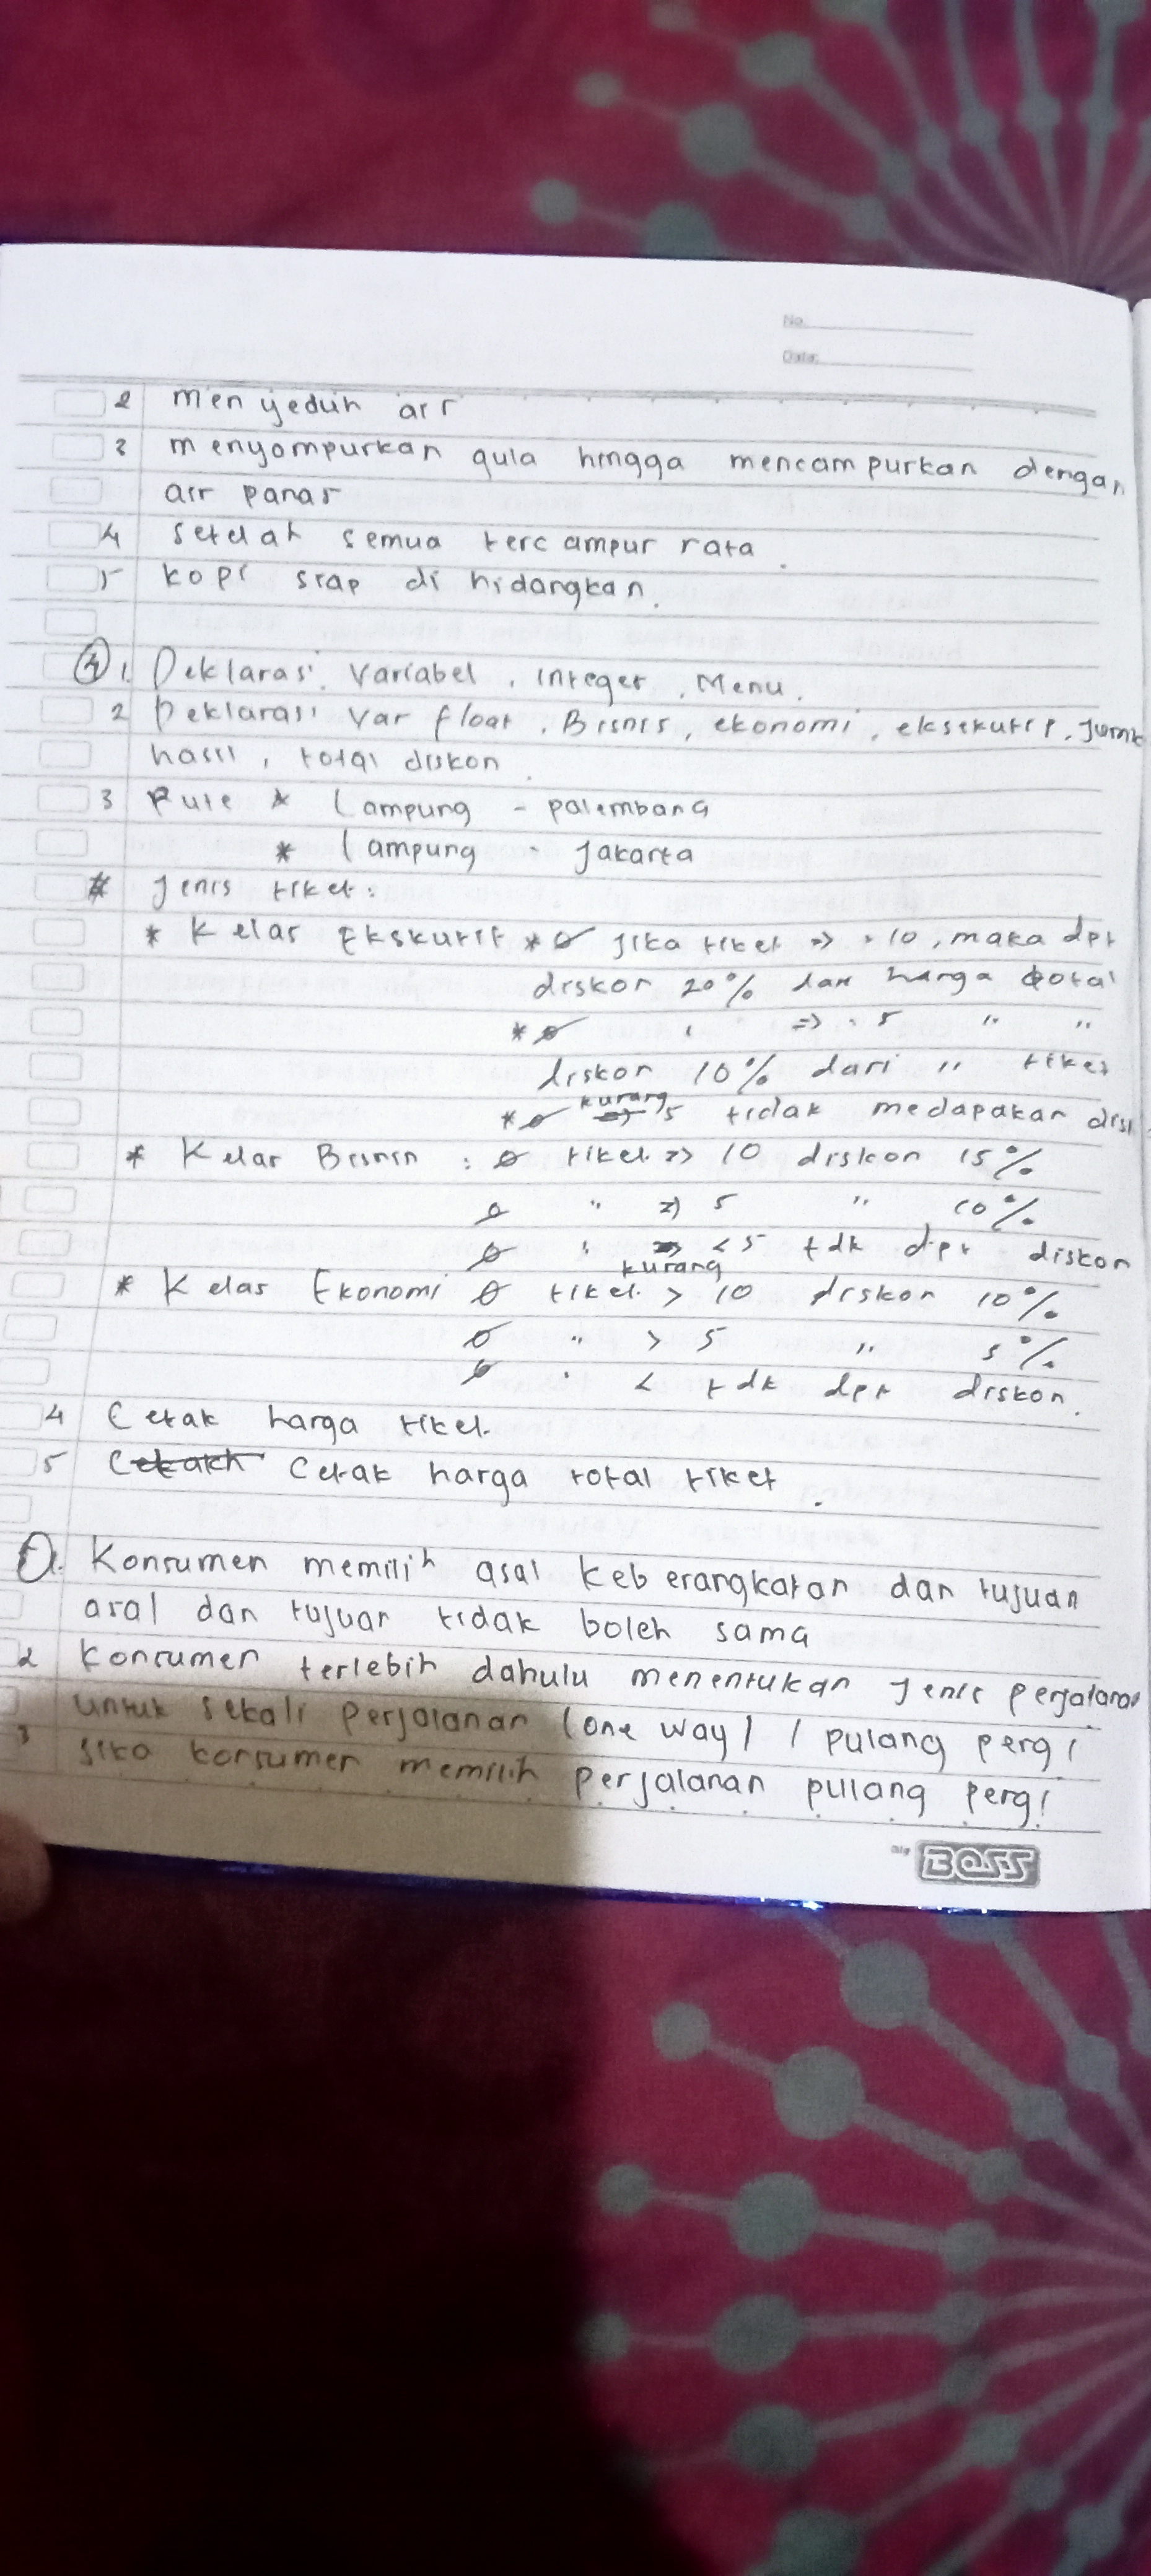 No.
Date:
2 menyeduh air
3 menyompurkan gula hingga mencampurkan dengan
air panas
4 setelah semua tercampur rata.
5 kopi siap di hidangkan.
4 1. Deklarasi Variabel, integer, Menu.
2 Deklarasi var float, Bisnis, ekonomi, eksekutif, Jumla
hasil, total diskon.
3 Rute * Lampung - palembang
* Lampung - Jakarta
# Jenis tiket:
* Kelas Ekskutif * Jika tiket => 10, maka dpt
diskon 20% dari harga total
* " => 5 " "
diskon 10% dari " tiket
* kurang 5 tidak medapakan disk
* Kelas Bisnis : tiket => 10 diskon 15%
" => 5 " 10%
" < 5 tdk dpt diskon
kurang
* Kelas Ekonomi tiket > 10 diskon 10%
" > 5 " 5%
" < tdk dpt diskon.
4 Cetak harga tiket.
5 Cetak harga total tiket.
1. Konsumen memilih asal keberangkatan dan tujuan
asal dan tujuan tidak boleh sama
2 Konsumen terlebih dahulu menentukan jenis perjalanan
untuk sekali perjalanan (one way) / pulang pergi
3 Jika konsumen memilih perjalanan pulang pergi
BOSS